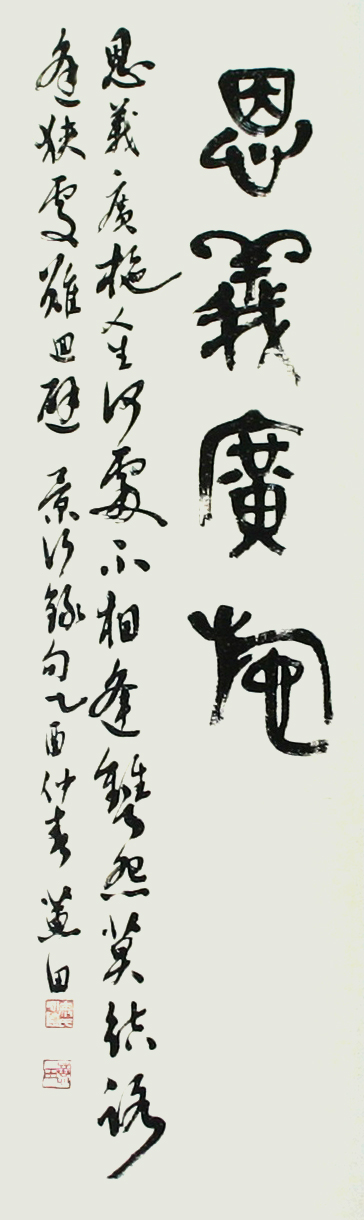 恩義廣施
恩義廣施人生何處不相逢讐怨莫結路
逢狹處難回避 景行錄句乙酉仲春 蕙田